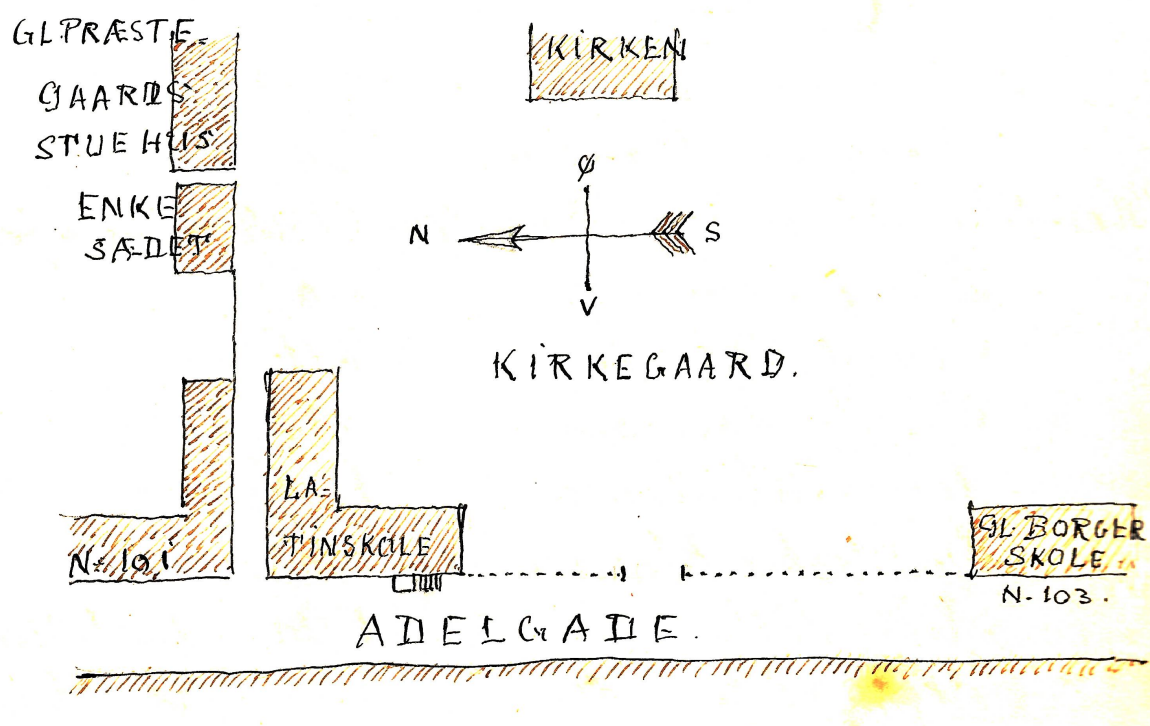 GL. PRÆSTE-
GAARDS
STUEHUS
KIRKEN
ENKE
SÆDET
Ø
N
S
V
KIRKEGAARD.
LA=
TINSKOLE
N- 101
GL BORGER
SKOLE.
N- 103.
ADELGADE.